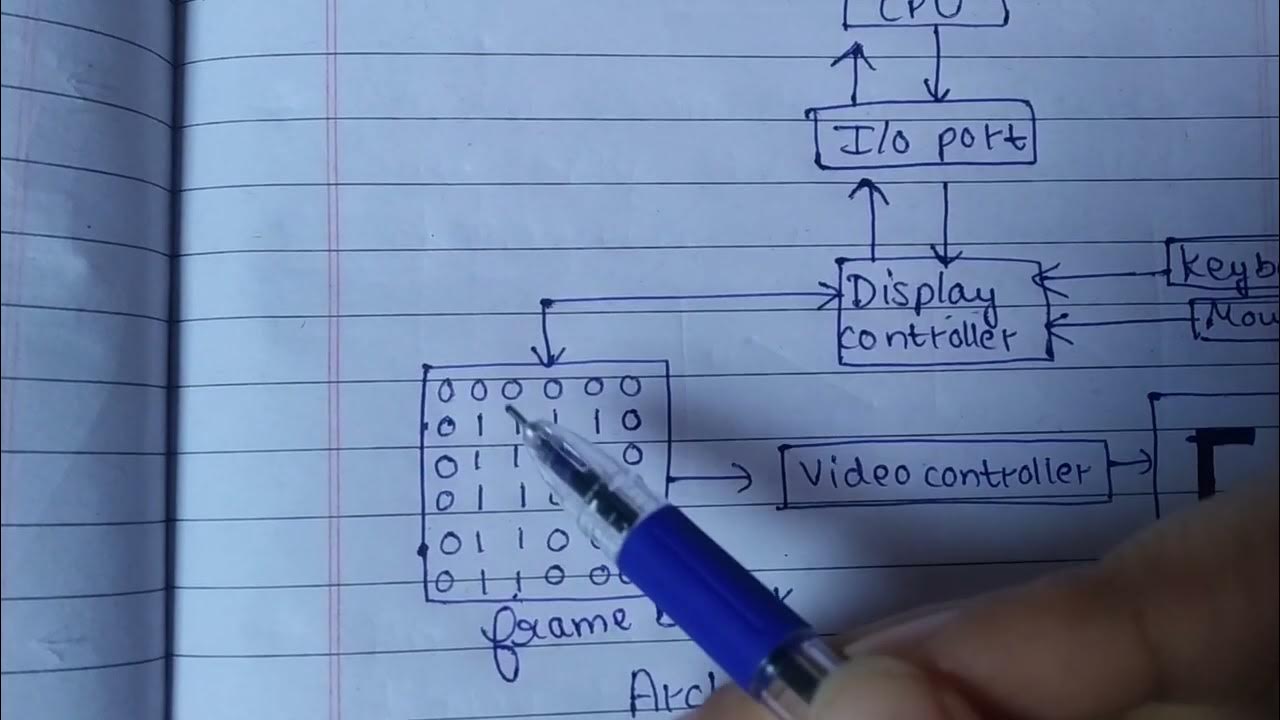 CPU
I/o port
Display
controller
Keyb
Mou
0 0 0 0 0 0
0 1 1 1 1 0
0 1 1 0
0 1 1
0 1 1 0
0 1 1 0 0
Video controller
frame
Arc